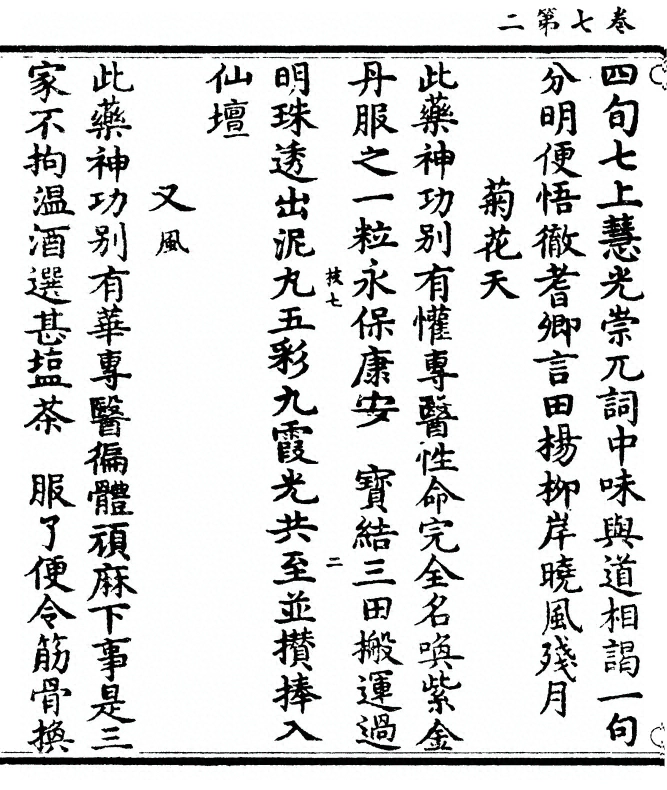 卷七第二
四句七上慧光崇兀詞中味與道相謁一句
分明便悟徹耆卿言田楊柳岸曉風殘月
菊花天
此藥神功别有懽專醫性命完全名喚紫金
丹服之一粒永保康安　寶結三田搬運過
枝七　二
明珠透出泥丸五彩九霞光共至並攢捧入
仙壇
又風
此藥神功别有華專醫徧體頑麻下事是三
家不拘温酒選甚塩茶　服了便令筋骨換